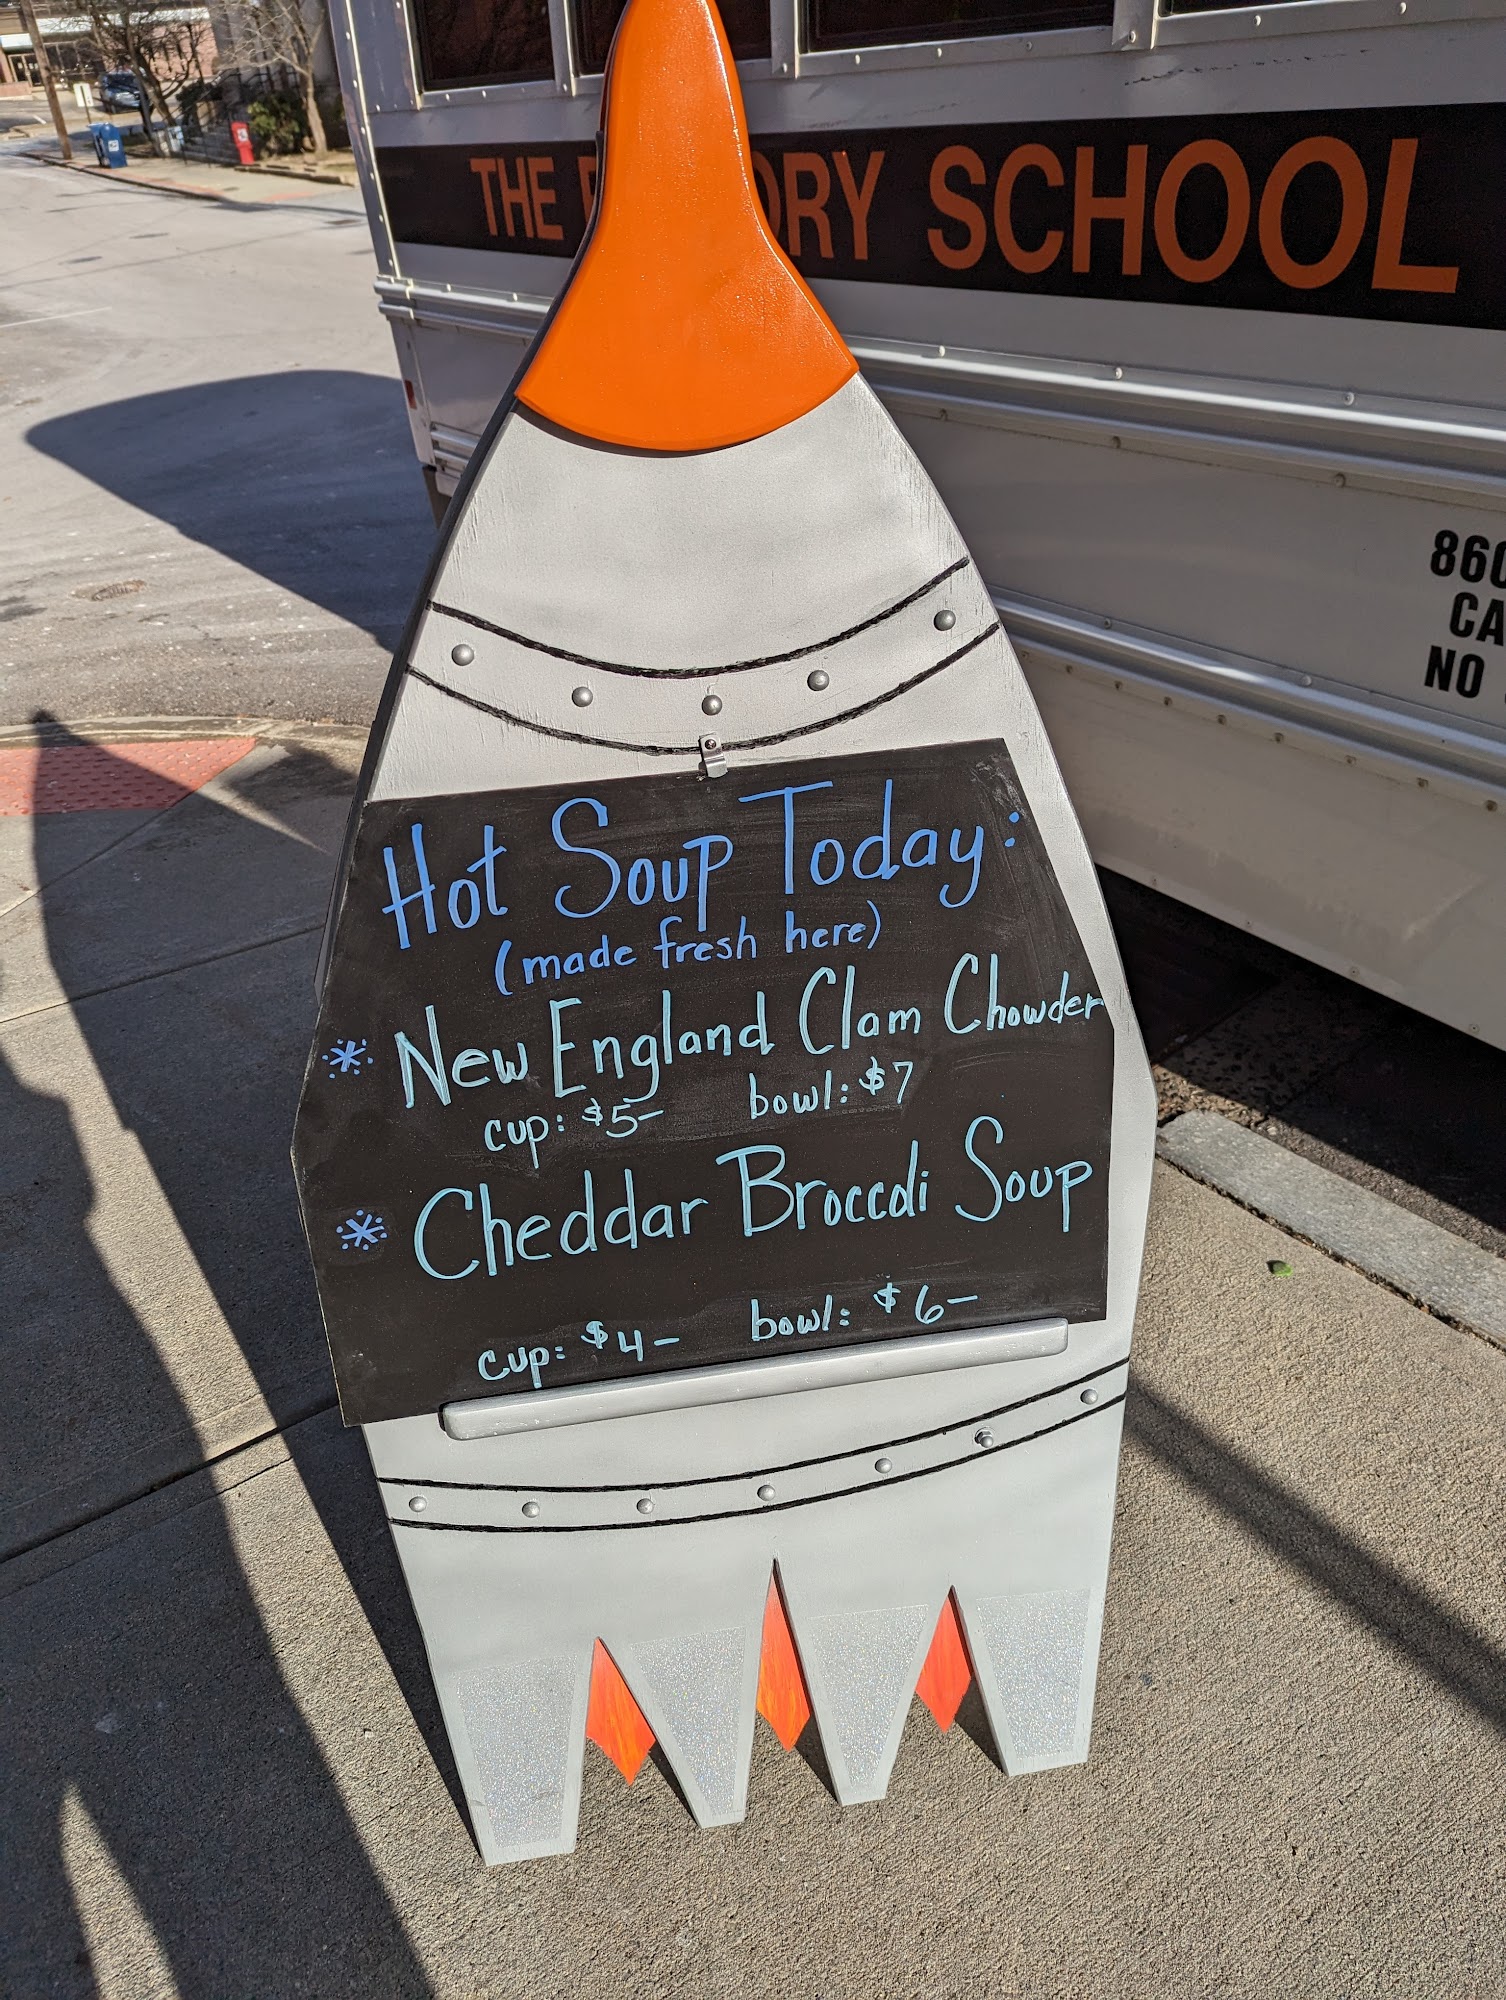 THE ORY SCHOOL
860
CA
NO
Hot Soup Today:
(made fresh here)
* New England Clam Chowder
cup: $5— bowl: $7
* Cheddar Broccoli Soup
cup: $4— bowl: $6—